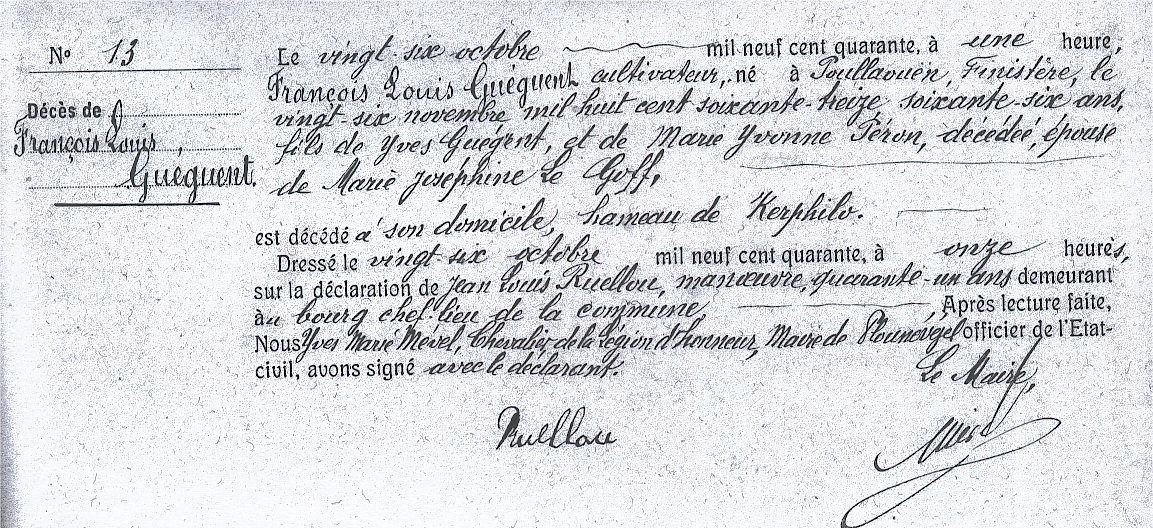 N° 13
Décès de
François Louis
Guéguent.
Le vingt-six octobre mil neuf cent quarante, à une heure,
François Louis Guéguent cultivateur, né à Poullaouën, Finistère, le
vingt-six novembre mil huit cent soixante-treize soixante-six ans,
fils de Yves Guégent, et de Marie Yvonne Péron, décédée, épouse
de Marie Joséphine Le Goff,
est décédé à son domicile, hameau de Kerphilo.
Dressé le vingt six octobre mil neuf cent quarante, à onze heures,
sur la déclaration de Jean Louis Ruellou, manœuvre, quarante-un ans demeurant
àu bourg chef-lieu de la commune, Après lecture faite,
Nous Yves Marie Mével, Chevalier de la Légion d'honneur, Maire de Plounevézel officier de l'Etat-
civil, avons signé avec le déclarant.
Le Maire,
Ruellou